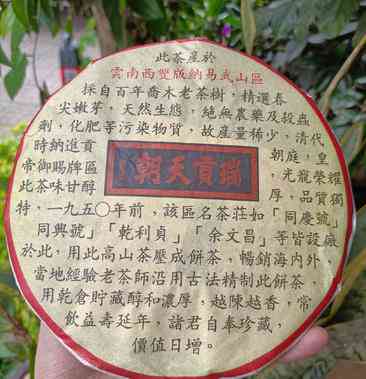 此茶產於
雲南西雙版納易武山區
採自百年喬木老茶樹，精選春
尖嫩芽，天然生態，絕無農藥及殺蟲
劑，化肥等污染物質，故產量稀少，清代
時納進貢朝庭，皇
帝御賜牌區，光龍榮耀
此茶味甘醇厚，品質獨
瑞貢天朝
特，一九五〇年前，該區名茶莊如「同慶號」
「同興號」「乾利貞」「余文昌」等皆設廠
於此，用此高山茶壓成餅茶，暢銷海內外
當地經驗老茶師沿用古法精制此餅茶，
用乾倉貯藏醇和濃厚，越陳越香，常
飲益壽延年，諸君自奉珍藏，
價值日增。